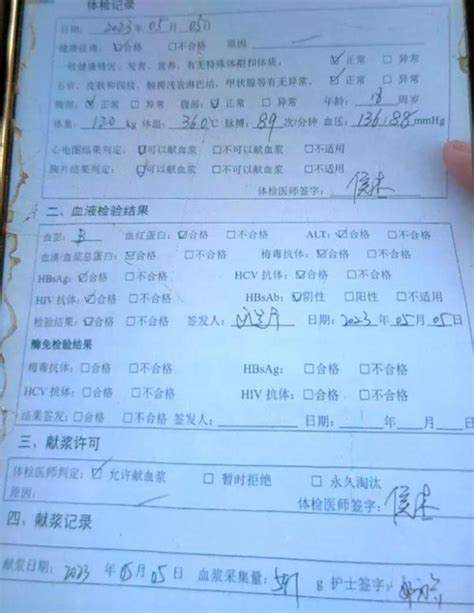 体检记录
日期：2023 年 05 月 05 日
健康征询：☑合格 □不合格 原因
一般健康情况、发育、营养，有无特殊体型和体质， ☑正常 □异常
五官、皮肤和四肢，触摸浅表淋巴结，甲状腺等有无异常， ☑正常 □异常
胸部：☑正常 □异常 腹部：☑正常 □异常 年龄：18 周岁
体重：120 kg 体温：36.0℃ 脉搏：89 次/分钟 血压：136:88 mmHg
心电图结果判定：☑可以献血浆 □不可以献血浆 □不适用
胸片结果判定：☑可以献血浆 □不可以献血浆 □不适用
体检医师签字：
二、血液检验结果
血型：B 血红蛋白：☑合格 □不合格 ALT：☑合格 □不合格
血清/血浆总蛋白：☑合格 □不合格 梅毒抗体：☑合格 □不合格
HBsAg：☑合格 □不合格 HCV 抗体：☑合格 □不合格
HIV 抗体：☑合格 □不合格 HBsAb：☑阴性 □阳性 □不适用
检验结果：☑合格 □不合格 签发人： 日期：2023 年 05 月 05 日
酶免检验结果
梅毒抗体：□合格 □不合格 HBsAg：□合格 □不合格
HCV 抗体：□合格 □不合格 HIV 抗体：□合格 □不合格
结果签发：□合格 □不合格 签发人： 日期： 年 月 日
三、献浆许可
体检医师判定：☑ 允许献血浆 □ 暂时拒绝 □ 永久淘汰
原因： 体检医师签字：
四、献浆记录
献浆日期：2023 年 05 月 05 日 血浆采集量： g 护士签字：